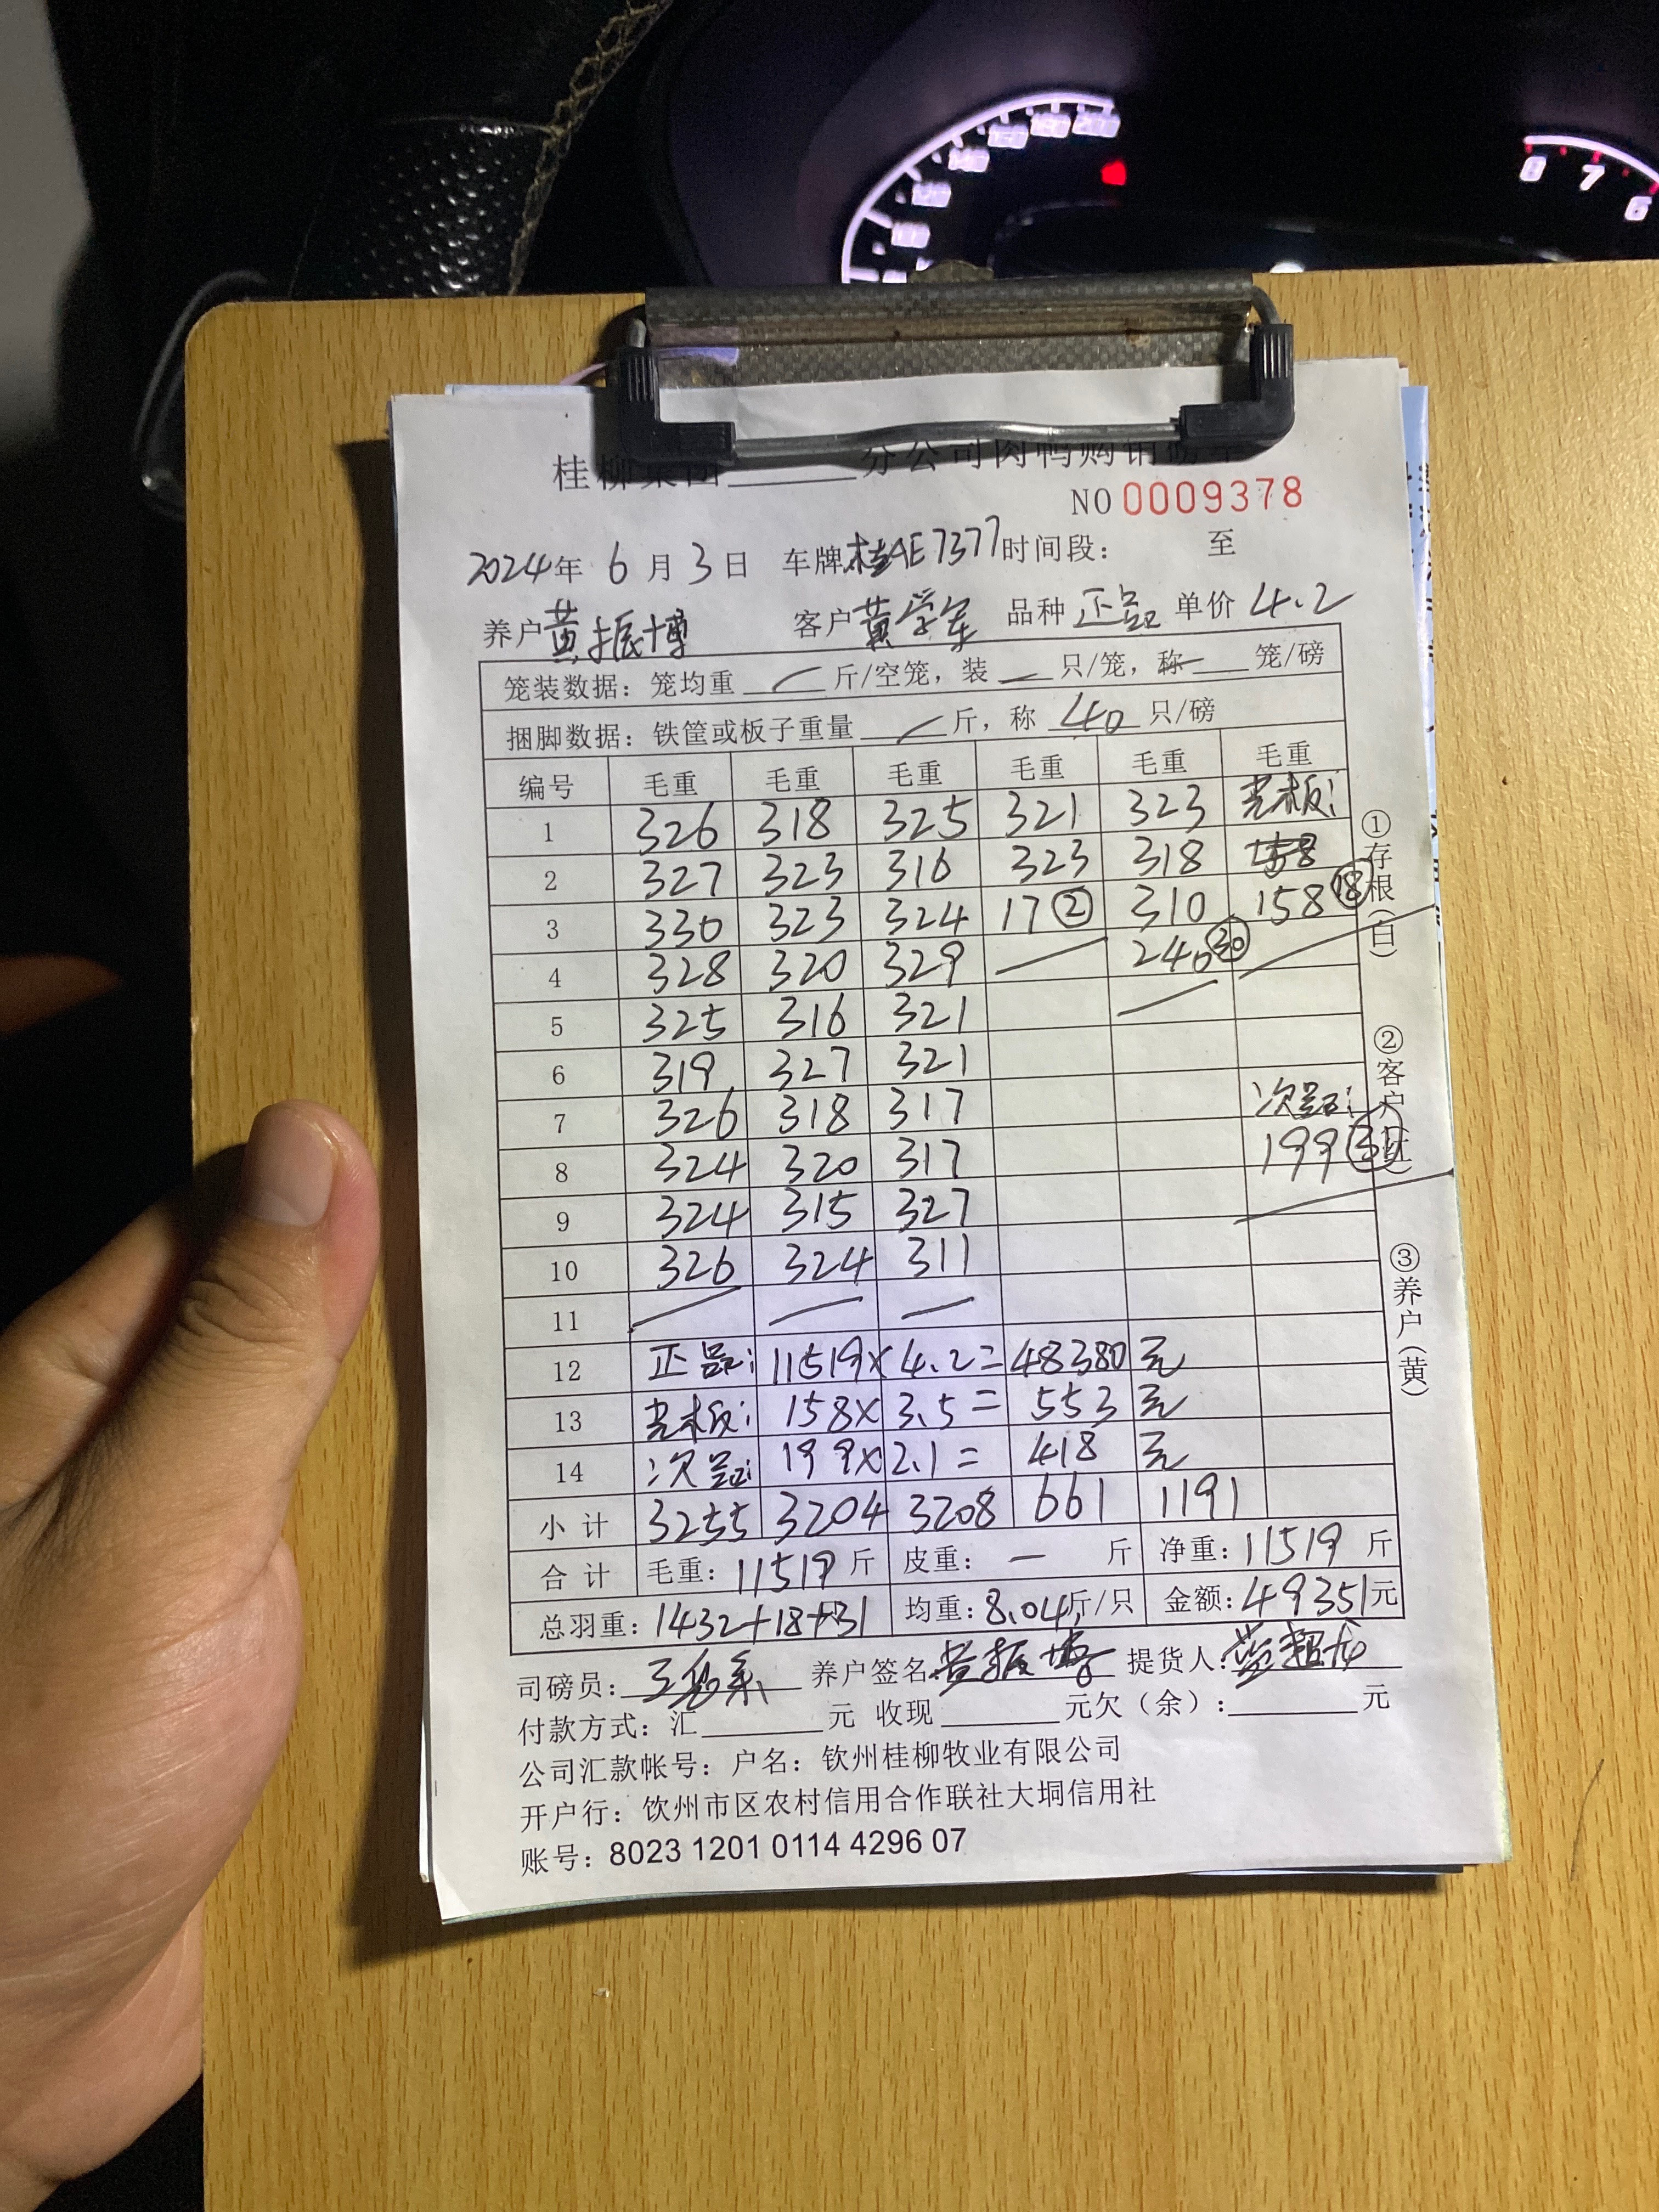 桂柳集团______分公司肉鸭购销磅单
NO 0009378
2024年 6 月 3 日 车牌桂AE7377时间段: 至
养户黄振博 客户黄学军 品种 正品 单价 4.2
笼装数据:笼均重 / 斤/空笼,装 — 只/笼,称 — 笼/磅
捆脚数据:铁筐或板子重量 / 斤,称 40 只/磅
编号 毛重 毛重 毛重 毛重 毛重 毛重
1 326 318 325 321 323 光板:
2 327 323 316 323 318
3 330 323 324 17② 310 158⑱
4 328 320 329 — 240㉚ —
5 325 316 321 —
6 319 327 321
7 326 318 317 次品:
8 324 320 317 199㉛
9 324 315 327 —
10 326 324 311
11 — — —
12 正品: 11519× 4.2= 48380 元
13 光板: 158× 3.5= 553 元
14 次品: 199× 2.1= 418 元
小计 3255 3204 3208 661 1191
合计 毛重:11519 斤 皮重: — 斤 净重:11519 斤
总羽重:1432+18+31 均重:8.04斤/只 金额:49351元
司磅员: 养户签名黄振博 提货人:
付款方式:汇______元 收现______元欠(余):______元
公司汇款帐号:户名:钦州桂柳牧业有限公司
开户行:钦州市区农村信用合作联社大垌信用社
账号:8023 1201 0114 4296 07
①存根(白)
②客户(红)
③养户(黄)
120
140
160
180
200
8
7
6